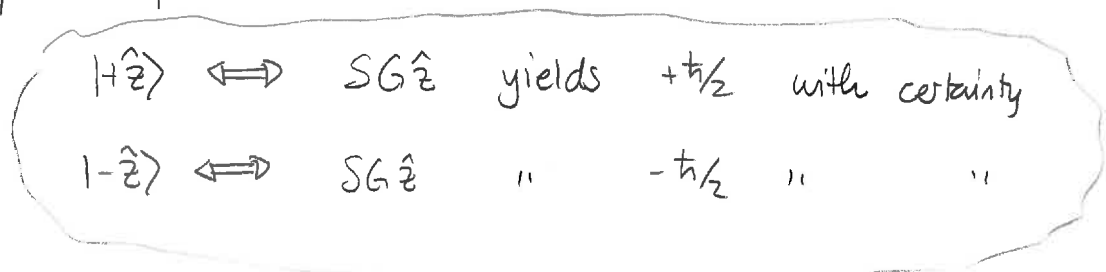 |+ẑ⟩ ⟺ SGẑ yields +ħ/2 with certainty
|-ẑ⟩ ⟺ SGẑ " -ħ/2 " "